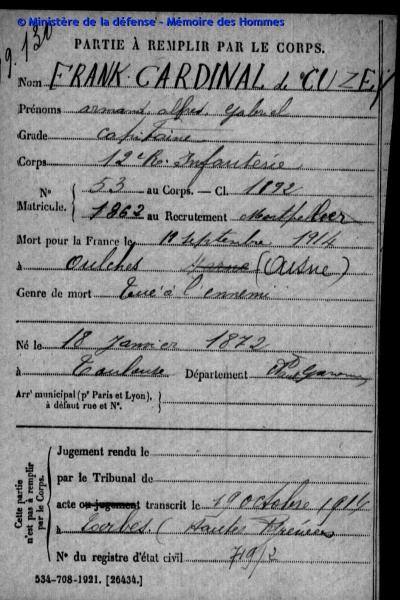 © Ministère de la défense - Mémoire des Hommes
9.130
PARTIE À REMPLIR PAR LE CORPS.
Nom FRANK. CARDINAL de CUZEY
Prénoms armand, alfred, Gabriel
Grade capitaine
Corps 12e R. Infanterie
N° 53 au Corps. — Cl. 1892
Matricule. 1862 au Recrutement Montpellier
Mort pour la France le septembre 1914
à Oulches (Aisne)
Genre de mort Tué à l'ennemi
Né le 18 Janvier 1872
à Toulouse Département Hte Garonne
Arrt municipal (pr Paris et Lyon),
à défaut rue et N°.
Cette partie
n'est pas à remplir
par le Corps.
Jugement rendu le
par le Tribunal de
acte ou jugement transcrit le 19 octobre 1914
à Tarbes (Hautes Pyrénées)
N° du registre d'état civil 719/2
534-708-1921. [26434.]